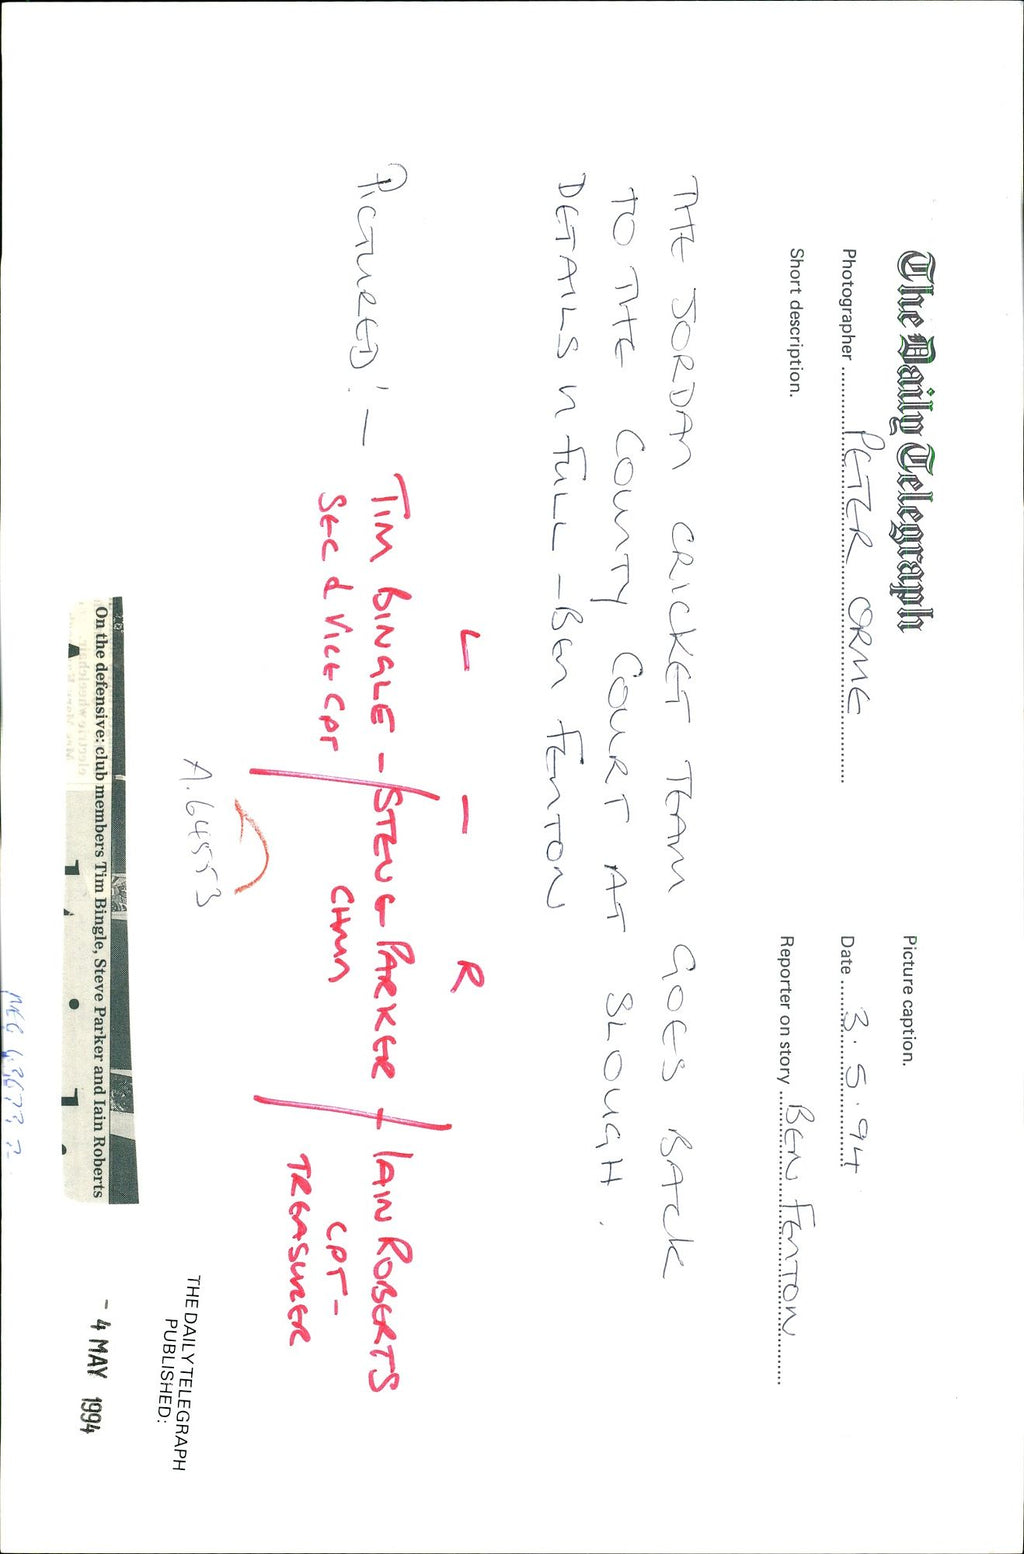 The Daily Telegraph
Picture caption.
Photographer PETER ORME
Date 3.5.94
Short description.
Reporter on story BEN FENTON
THE JORDAN CRICKET TEAM GOES BACK
TO THE COUNTY COURT AT SLOUGH.
DETAILS N FULL - BEN FENTON
L - R
PICTURED! - TIM BINGLE - STEVE PARKER - IAIN ROBERTS
SEC & VICE CPT CHMN CPT-
TREASURER
A.64553
THE DAILY TELEGRAPH
PUBLISHED:
- 4 MAY 1994
On the defensive: club members Tim Bingle, Steve Parker and Iain Roberts
NEG